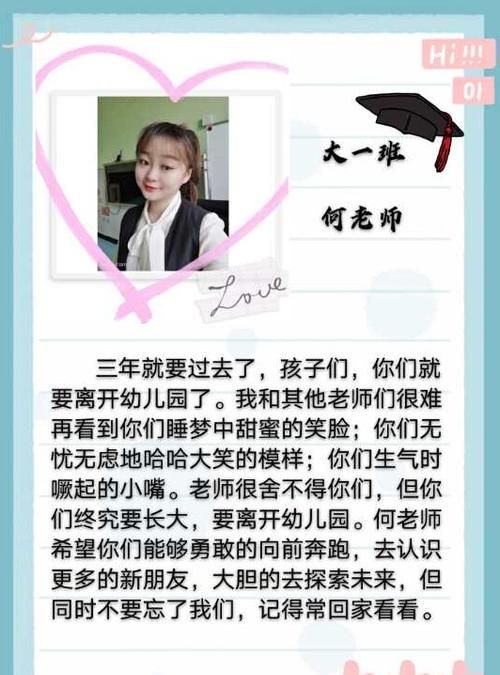 Hi!!!
01
大一班
何老师
Love
三年就要过去了，孩子们，你们就
要离开幼儿园了。我和其他老师们很难
再看到你们睡梦中甜蜜的笑脸；你们无
忧无虑地哈哈大笑的模样；你们生气时
噘起的小嘴。老师很舍不得你们，但你
们终究要长大，要离开幼儿园。何老师
希望你们能够勇敢的向前奔跑，去认识
更多的新朋友，大胆的去探索未来，但
同时不要忘了我们，记得常回家看看。